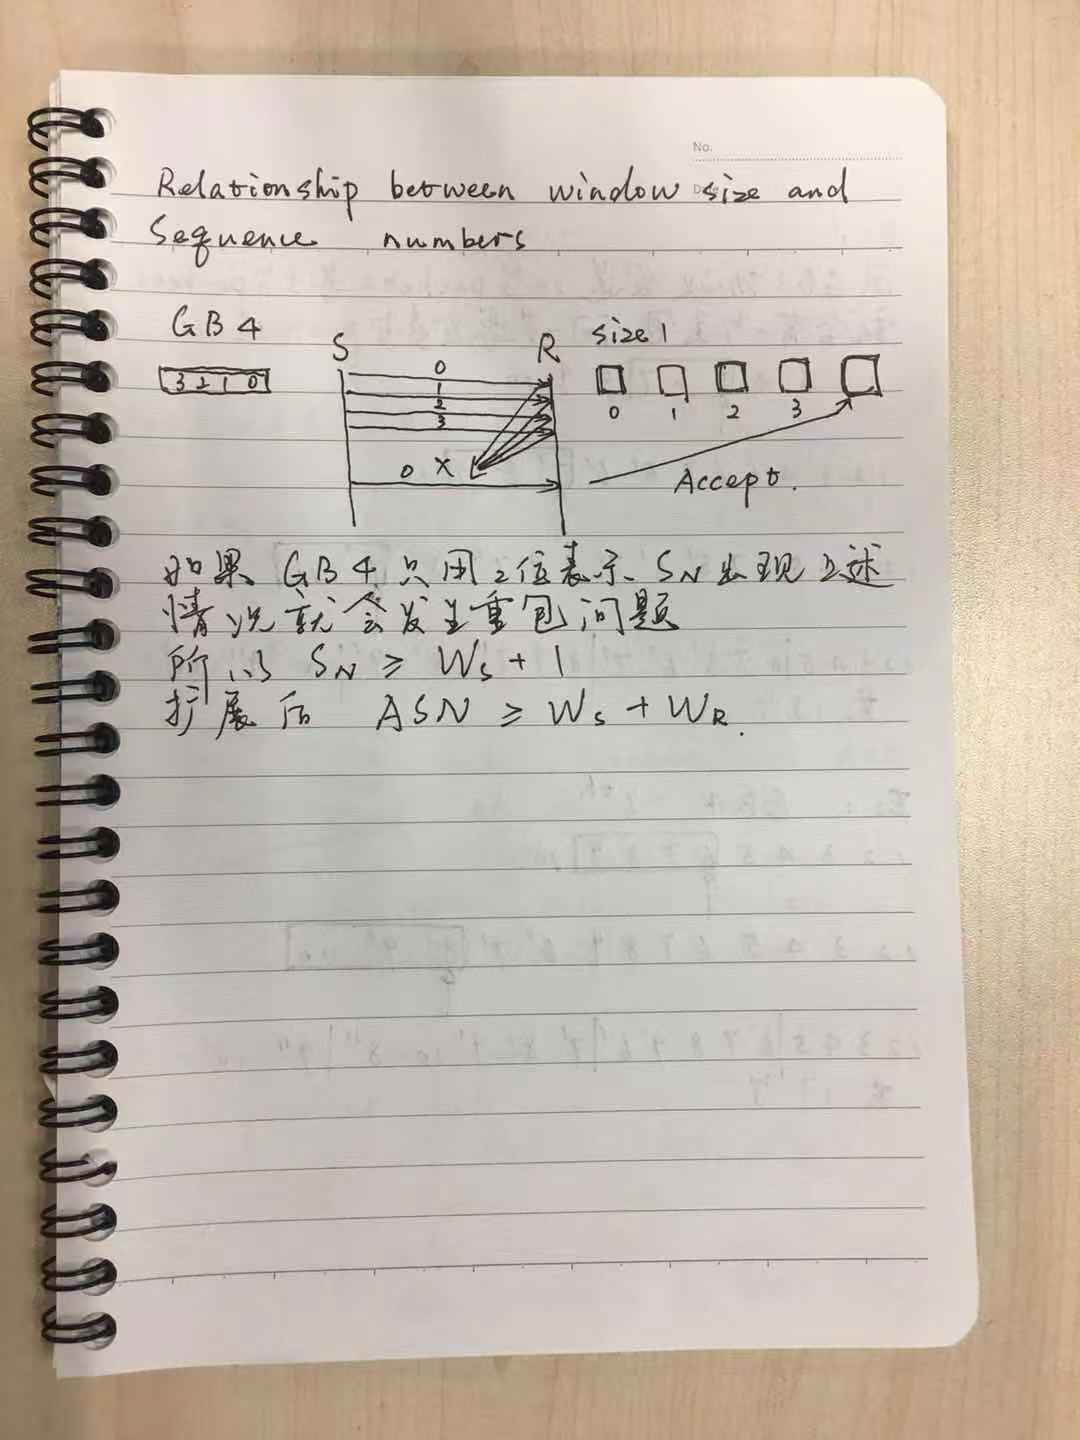 No.
Relationship between window size and
Sequence numbers
GB4
S
R
size 1
3 2 1 0
0
1
2
3
0 1 2 3
0 X
Accept.
如果 GB4 只用2位表示 SN 出现上述
情况就会发生重包问题
所以 SN ≥ WS + 1
扩展后 ASN ≥ WS + WR.